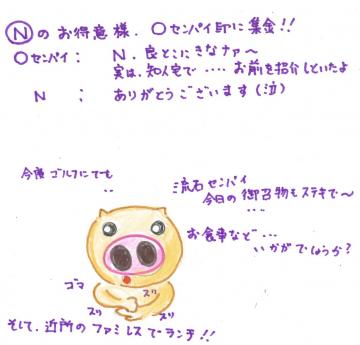 Ⓝのお得意様.〇センパイ邸に集金!!
〇センパイ: N.良とこにきなナァ〜
実は.知人宅で‥‥お前を紹介しといたよ
N : ありがとうございます(泣)
今度ゴルフにでも
‥
流石センパイ
今日の御召物もステキで〜
‥‥
お食事など‥・
いかがでしょうか?
ゴマ
スリ
スリ
スリ
そして.近所のファミレスでランチ!!